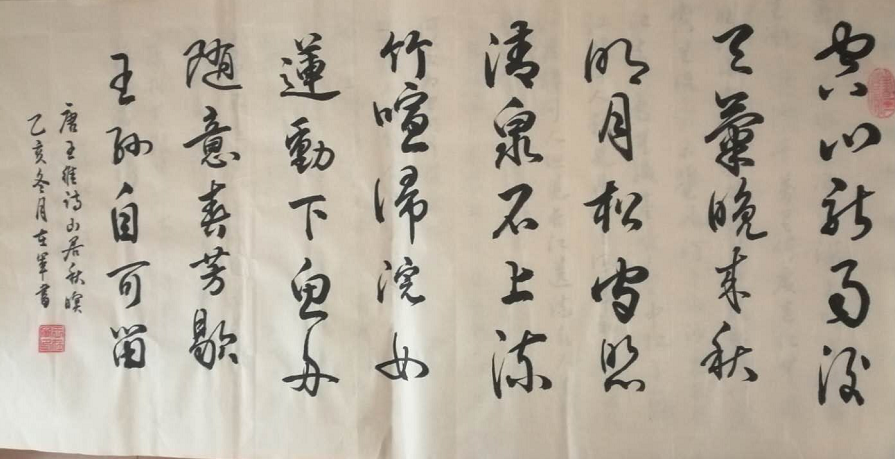 空山新雨後
天氣晚來秋
明月松間照
清泉石上流
竹喧歸浣女
蓮動下魚舟
随意春芳歇
王孫自可留
唐王維詩山居秋暝
乙亥冬月書